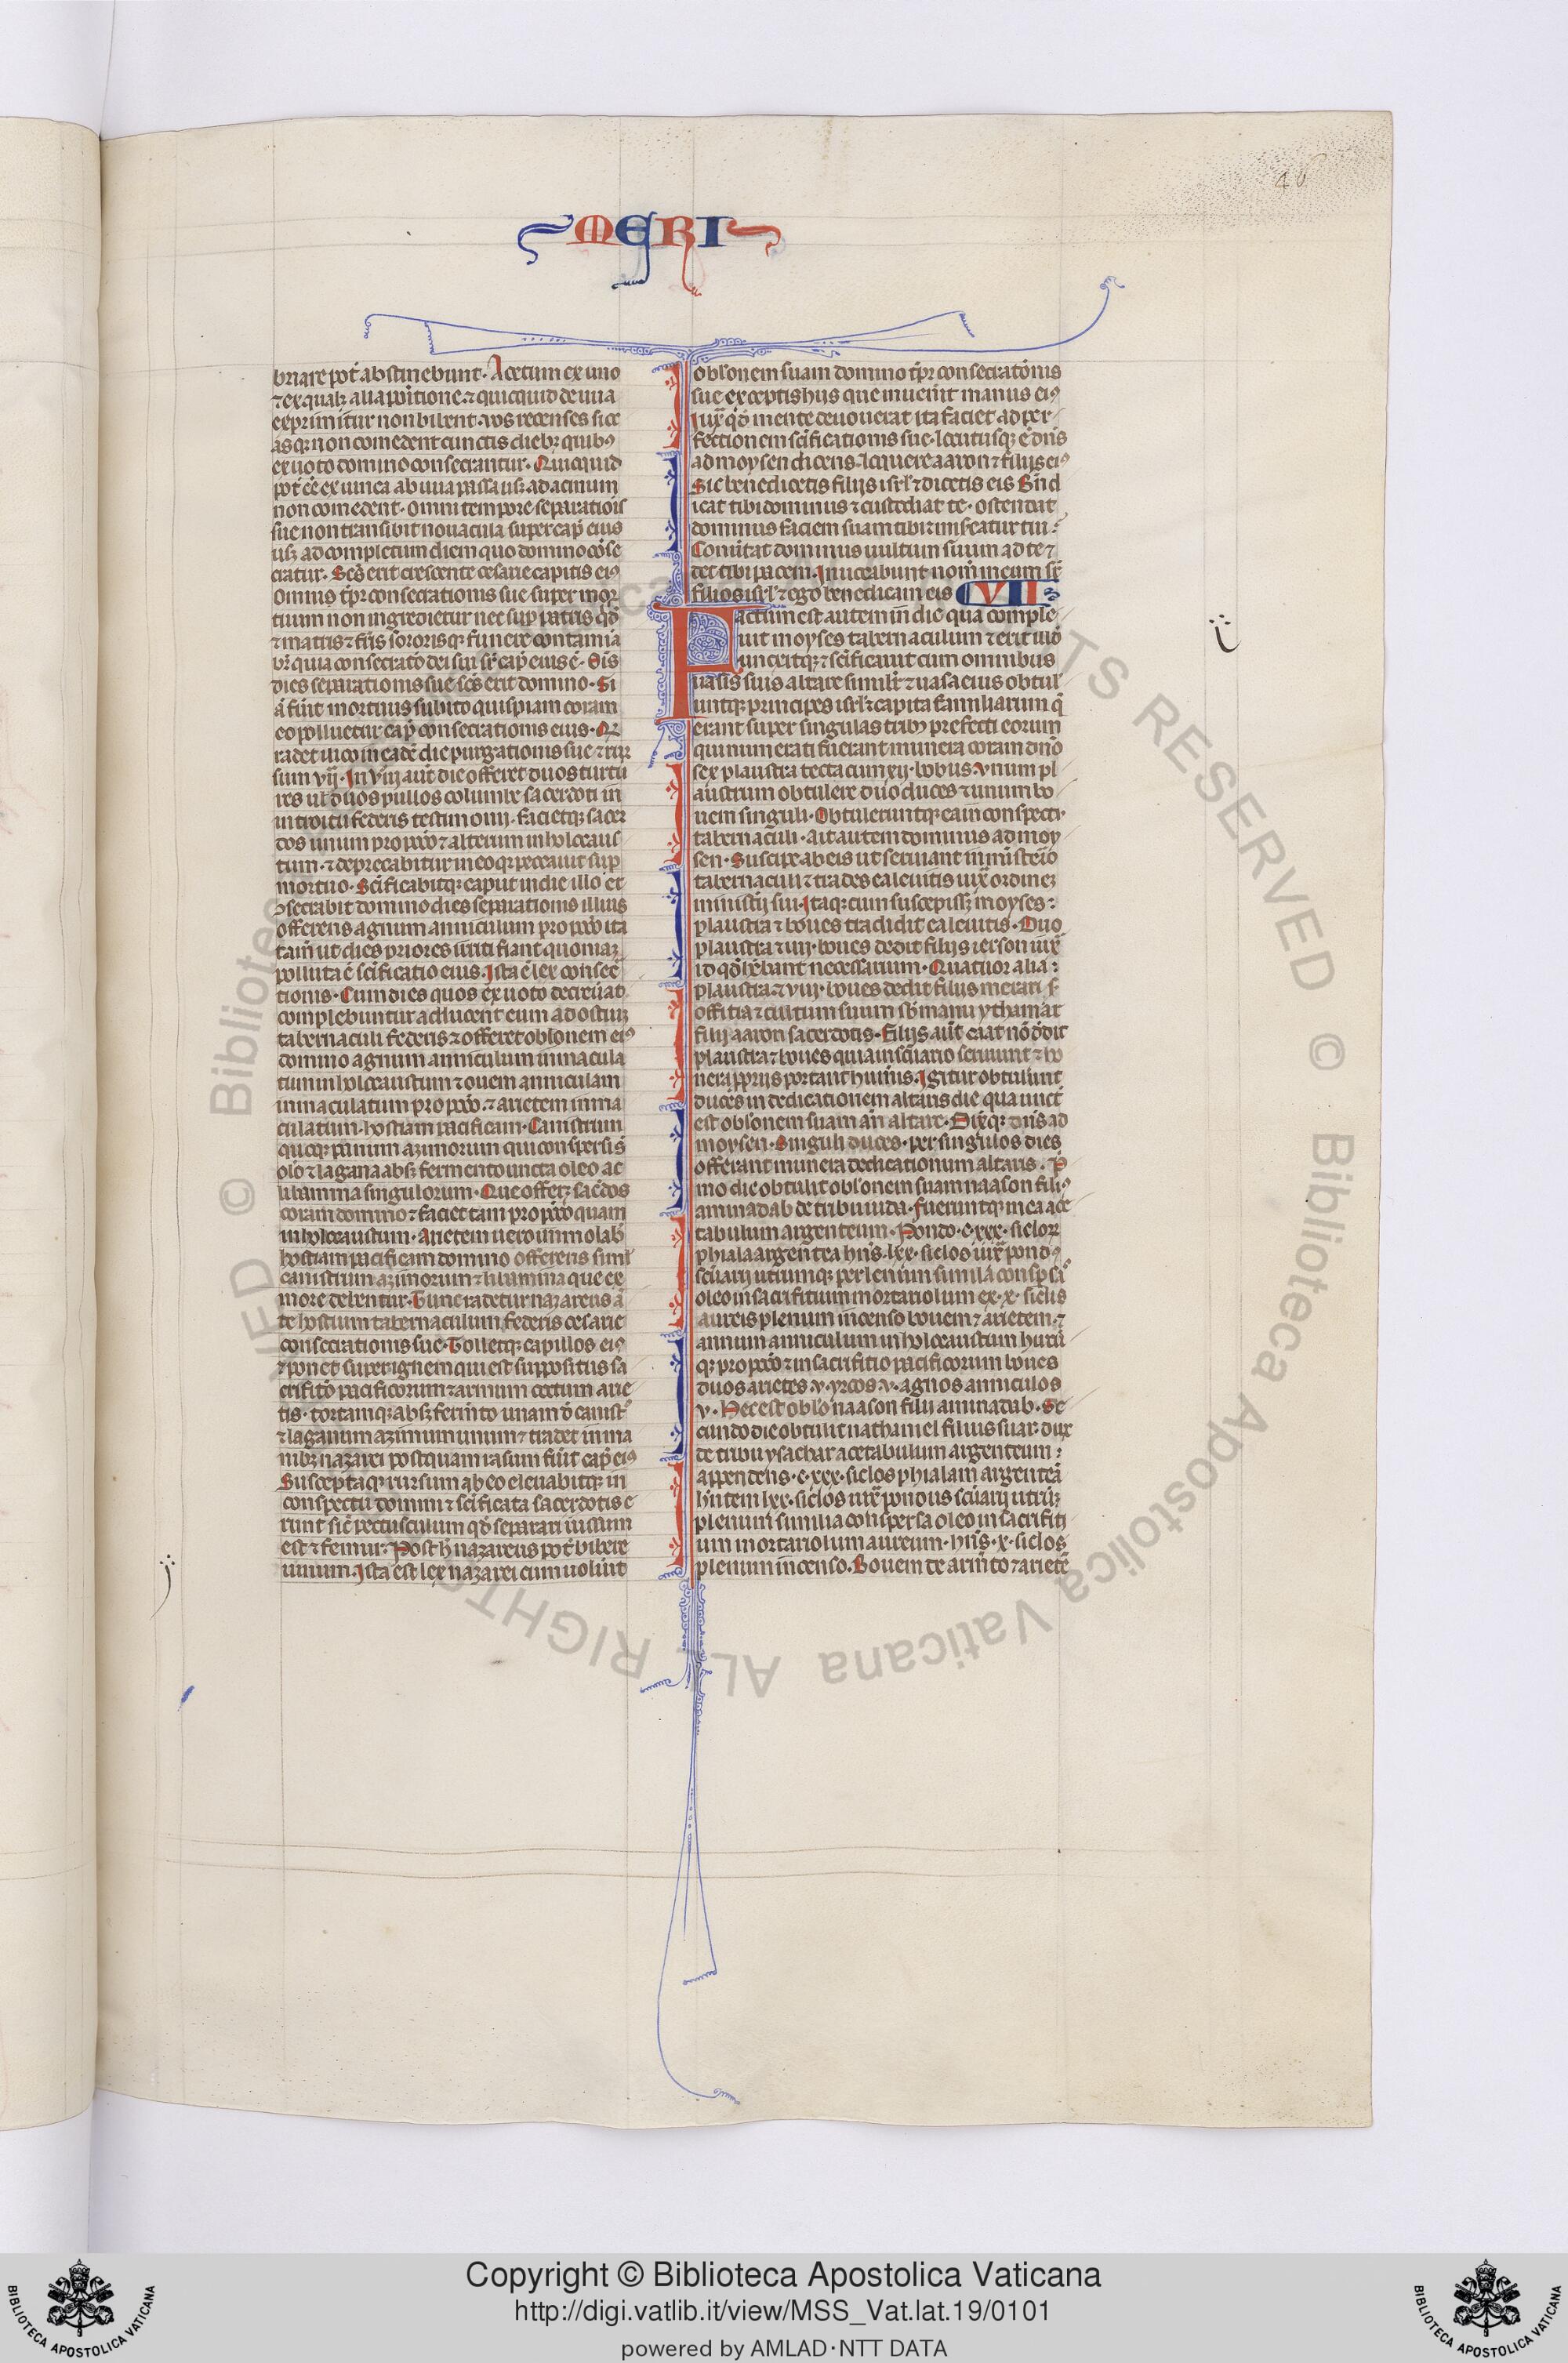 46
MERI
briare pot̄ abstinebunt. Acetum ex uno
⁊ ex qualꝫ alia potione. ⁊ quicquid de uua
exprimitur non bibent. vos recenses sicc
asqꝫ non comedent cunctis diebꝫ quibꝰ
ex uoto domino consecrantur. Quicquid
pot̄ eē ex uinea ab uua passa usqꝫ ad acinum
non comedent. Omni tempore separationis
sue non transibit nouacula super cap̄ eius
usqꝫ ad completum diem quo domino cōse
cratur. Scs̄ erit crescente cesarie capitis eiꝰ
Omnis tp̄r consecrationis sue super mor
tuum non ingredietur nec sup̄ patris qd̄
⁊ matris ⁊ fr̄is sororisqꝫ funere contamīa
br̄ quia consecratō dei sui sr̄ cap̄ eius ē. Oīs
dies separationis sue scs̄ erit domino. Si
ā fūit mortuus subito quispiam coram
eo polluetur cap̄ consecrationis eius. Qꝫ
radet ilico in eadē die purgationis sue ⁊ rur
sum vij. In viij aūt die offeret duos turtu
res ul̄ duos pullos columbe sacerdoti in
introitu federis testimonij. facietqꝫ sacer
dos unum pro pctō ⁊ alterum in holocaus
tum. ⁊ deprecabitur in eo qꝫ peccauit sup̄
mortuo. Scīficabitqꝫ caput in die illo et
ꝯsecrabit domino dies separationis illius
offerens agnum anniculum pro pctō ita
tam̄ ut dies priores irriti fiant quoniaꝫ
polluta ē scīficatio eius. Ista ē lex consec̄
tionis. Cum dies quos ex uoto decreuāt
complebuntur adducent eum ad ostiuꝫ
tabernaculi federis ⁊ offeret obl̄onem eiꝰ
domino agnum anniculum immacula
tum in holocaustum ⁊ ouem anniculam
immaculatum pro pctō. ⁊ arietem imma
culatum. hostiam pacificam. Canistrum
queqꝫ panum azimorum qui conspersi s̄
oleo ⁊ lagana absqꝫ fermento uncta oleo ac
libamina singulorum. Que offerꝫ sac̄dos
coram domino ⁊ faciet tam pro pctō quam
in holocaustum. Arietem uero immolab̄
hostiam pacificam domino offerens siml̄
canistrum azimorum ⁊ libamina que ex
more debentur. Tunc radetur nazareus ā
te hostium tabernaculum federis cesarie
consecrationis sue. Tolletqꝫ capillos eiꝰ
⁊ ponet super ignem qui est suppositus sa
crificō pacificorum ⁊ armum coctum arie
tis. tortamqꝫ absqꝫ fermto unam d̄ canist̄
⁊ laganum azimum unum ⁊ tradet in ma
nibꝫ nazarei postquam rasum fūit cap̄ eiꝰ
Susceptaqꝫ rursum ab eo eleuabitqꝫ in
conspectu domini ⁊ scīficata sacerdotis e
runt sic̄ pectusculum qd̄ separari iussum
est ⁊ femur. Post h̄ nazareus pot̄ bibere
uinum. Ista est lex nazarei cum uoūit
obl̄onem suam domino tp̄r consecrationis
sue exceptis hijs que inuen̄it manus eiꝰ
Iux̄ qd̄ mente deuouerat ita faciet ad per
fectionem scīficationis sue. locutusqꝫ ē dn̄s
ad moysen dicens. loquere aaron ⁊ filijs eiꝰ
Sic benedicetis filijs isrl̄ ⁊ dicetis eis Bn̄d
icat tibi dominus ⁊ custodiat te. ostendat
dominus faciem suam tibi ⁊ misereatur tui.
Conūtat dominus uultum suum ad te ⁊
det tibi pacem. Inuocabunt nomen meum sr̄
filios isrl̄ ⁊ ego benedicam eis VII
Factum est autem in die qua comple
uit moyses tabernaculum ⁊ erexit illud
unxitqꝫ ⁊ scīficauit cum omnibus
uasis suis altare similr̄ ⁊ uasa eius obtul̄
untqꝫ principes isrl̄ ⁊ capita familiarum q̄
erant super singulas tribꝰ prefecti eorum
qui numerati fuerant munera coram dn̄o
sex plaustra tecta cum xij. bobus. vnum pl
austrum obtulere duo duces ⁊ unum bo
uem singuli. Obtuleruntqꝫ ea in conspectu
tabernaculi. ait autem dominus ad moy
sen. Suscipe ab eis ut seruiant in ministerio
tabernaculi ⁊ trades ea leuitis iux̄ ordineꝫ
ministerij sui. Itaqꝫ cum suscepissꝫ moyses
plaustra ⁊ boues tradidit ea leuitis. Duo
plaustra ⁊ iiij. boues dedit filijs ierson iux̄
id qd̄ hēbant necessarium. Quatuor alia
plaustra ⁊ viij. boues dedit filiis merari s̄
offitia ⁊ cultum suum sb̄ manu ythamar
filij aaron sacerdotis. filijs aūt caat nō dedit
plaustra ⁊ boues quia in sc̄uario seruiunt ⁊ ho
nera ꝓprijs portant humīs. Igitur obtulūnt
duces in dedicationem altaris die qua unct̄
est obl̄onem suam an̄ altare. Dixitqꝫ dn̄s ad
moysen. Singuli duces. per singulos dies
offerant munera dedicationum altaris. P̄
mo die obtulit obl̄onem suam naason filiꝰ
aminadab de tribu iuda. fueruntqꝫ in ea ace
tabulum argenteum. Pondo. c. xxx. sicloꝝ
phiala argentea hn̄s. lxx. siclos iux̄ pondꝰ
sc̄uarij utrumqꝫ plenum simila consp̄sa
oleo in sacrifitium mortariolum ex. x. siclis
aureis plenum incenso bouem ⁊ arietem. ⁊
annum anniculum in holocaustum hircū
qꝫ pro pctō ⁊ in sacrifitio pacificorum boues
duos arietes. v. yrcos. v. agnos anniculos
v. Hec est obl̄o naason filij aminadab. Se
cundo die obtulit nathaniel filius suar. dux
de tribu ysachar acetabulum argenteum
appendens. c. xxx. siclos phialam argenteā
hn̄tem lxx. siclos iux̄ pondus sc̄uarij utrūqꝫ
plenum simila conspersa oleo in sacrifiti
um mortariolum aureum. hn̄s. x. siclos
plenum incenso. Bouem de armto ⁊ arietē
Copyright © Biblioteca Apostolica Vaticana
http://digi.vatlib.it/view/MSS_Vat.lat.19/0101
powered by AMLAD·NTT DATA
BIBLIOTECA APOSTOLICA VATICANA
BIBLIOTECA APOSTOLICA VATICANA
© Biblioteca Apostolica Vaticana ALL RIGHTS RESERVED